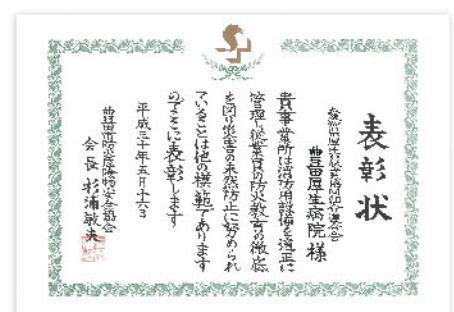 表彰状
愛知県厚生農業協同組合連合会
豊田厚生病院 様
貴事業所は消防用設備を適正に
管理し従業員の防火教育の徹底
を図り災害の未然防止に努められ
ていることは他の模範であります
のでここに表彰します
平成三十年五月十六日
豊田市防火危険物安全協会
会長 杉浦敏夫